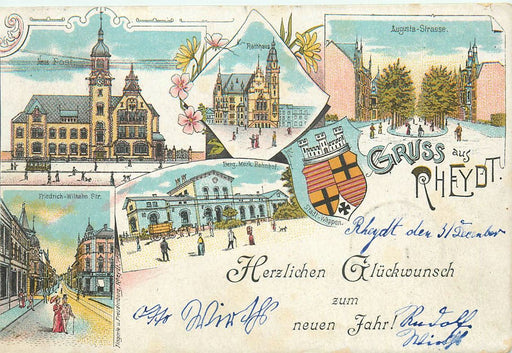 Kais. Post.
Rathhaus
Augusta-Strasse.
GRUSS aus
RHEYDT.
Friedrich-Wilhelm Str.
Berg. Märk. Bahnhof.
Stadt-Wappen.
Rheydt den 31 December
Herzlichen Glückwunsch
zum
neuen Jahr!
Rudolf